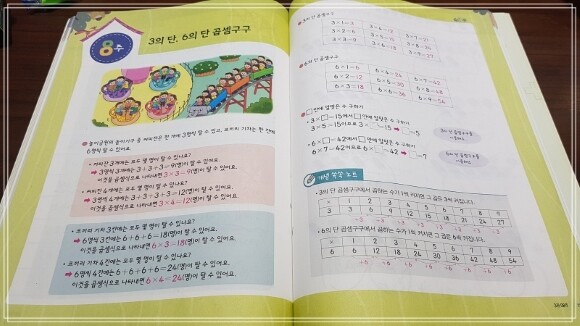 8수
3의 단, 6의 단 곱셈구구
놀이공원의 놀이기구 중 커피잔은 한 개에 3명씩 탈 수 있고, 꼬마 기차는 한 칸에
6명씩 탈 수 있어요.
• 커피잔 3개에는 모두 몇 명이 탈 수 있나요?
➡ 3명씩 3개에는 3+3+3=9(명)이 탈 수 있어요.
이것을 곱셈식으로 나타내면 3×3=9(명)이 탈 수 있어요.
• 커피잔 4개에는 모두 몇 명이 탈 수 있나요?
➡ 3명씩 4개에는 3+3+3+3=12(명)이 탈 수 있어요.
이것을 곱셈식으로 나타내면 3×4=12(명)이 탈 수 있어요.
• 꼬마 기차 3칸에는 모두 몇 명이 탈 수 있나요?
➡ 6명씩 3칸에는 6+6+6=18(명)이 탈 수 있어요.
이것을 곱셈식으로 나타내면 6×3=18(명)이 탈 수 있어요.
• 꼬마 기차 4칸에는 모두 몇 명이 탈 수 있나요?
➡ 6명씩 4칸에는 6+6+6+6=24(명)이 탈 수 있어요.
이것을 곱셈식으로 나타내면 6×4=24(명)이 탈 수 있어요.
3의 단 곱셈구구
3×1=3 3×4=12 3×7=21
3×2=6 3×5=15 3×8=24
3×3=9 3×6=18 3×9=27
6의 단 곱셈구구
6×1=6 6×4=24 6×7=42
6×2=12 6×5=30 6×8=48
6×3=18 6×6=36 6×9=54
□ 안에 알맞은 수 구하기
• 3×□=15에서 □ 안에 알맞은 수 구하기
3×5=15이므로 3×□=15 ➡ □=5
• 6×□=42에서 □ 안에 알맞은 수 구하기
6×7=42이므로 6×□=42 ➡ □=7
개념 쏙쏙 노트
• 3의 단 곱셈구구에서 곱하는 수가 1씩 커지면 그 곱은 3씩 커집니다.
× 1 2 3 4 5 6 7 8 9
3 3 6 9 12 15 18 21 24 27
+3 +3 +3 +3 +3 +3 +3 +3
• 6의 단 곱셈구구에서 곱하는 수가 1씩 커지면 그 곱은 6씩 커집니다.
× 1 2 3 4 5 6 7 8 9
6 6 12 18 24 30 36 42 48 54
+6 +6 +6 +6 +6 +6 +6 +6